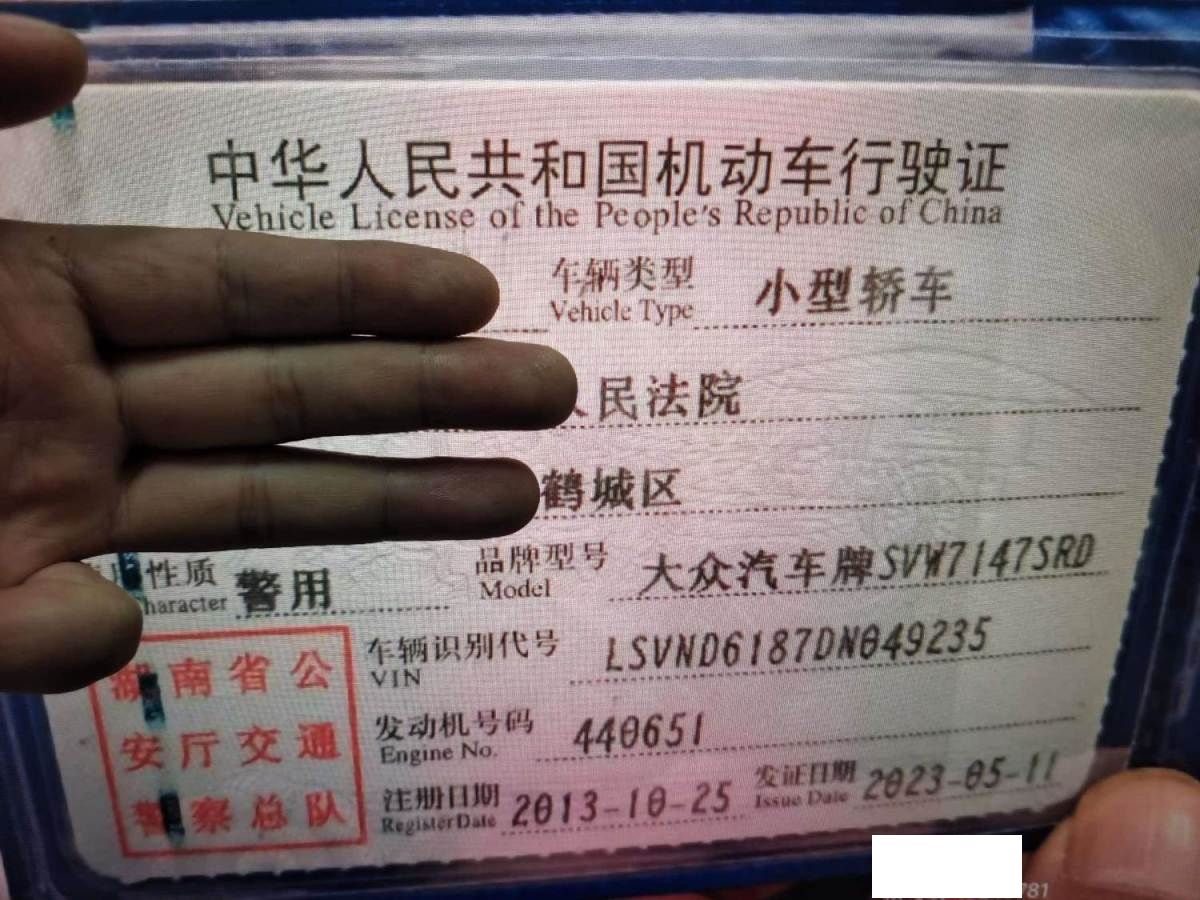 中华人民共和国机动车行驶证
Vehicle License of the People's Republic of China
车辆类型 小型轿车
Vehicle Type
人民法院
鹤城区
性质 警用 品牌型号 大众汽车牌SVW7147SRD
haracter Model
车辆识别代号 LSVND6187DN049235
VIN
发动机号码 440651
Engine No.
注册日期 2013-10-25 发证日期 2023-05-11
Register Date Issue Date
湖南省公
安厅交通
警察总队
781